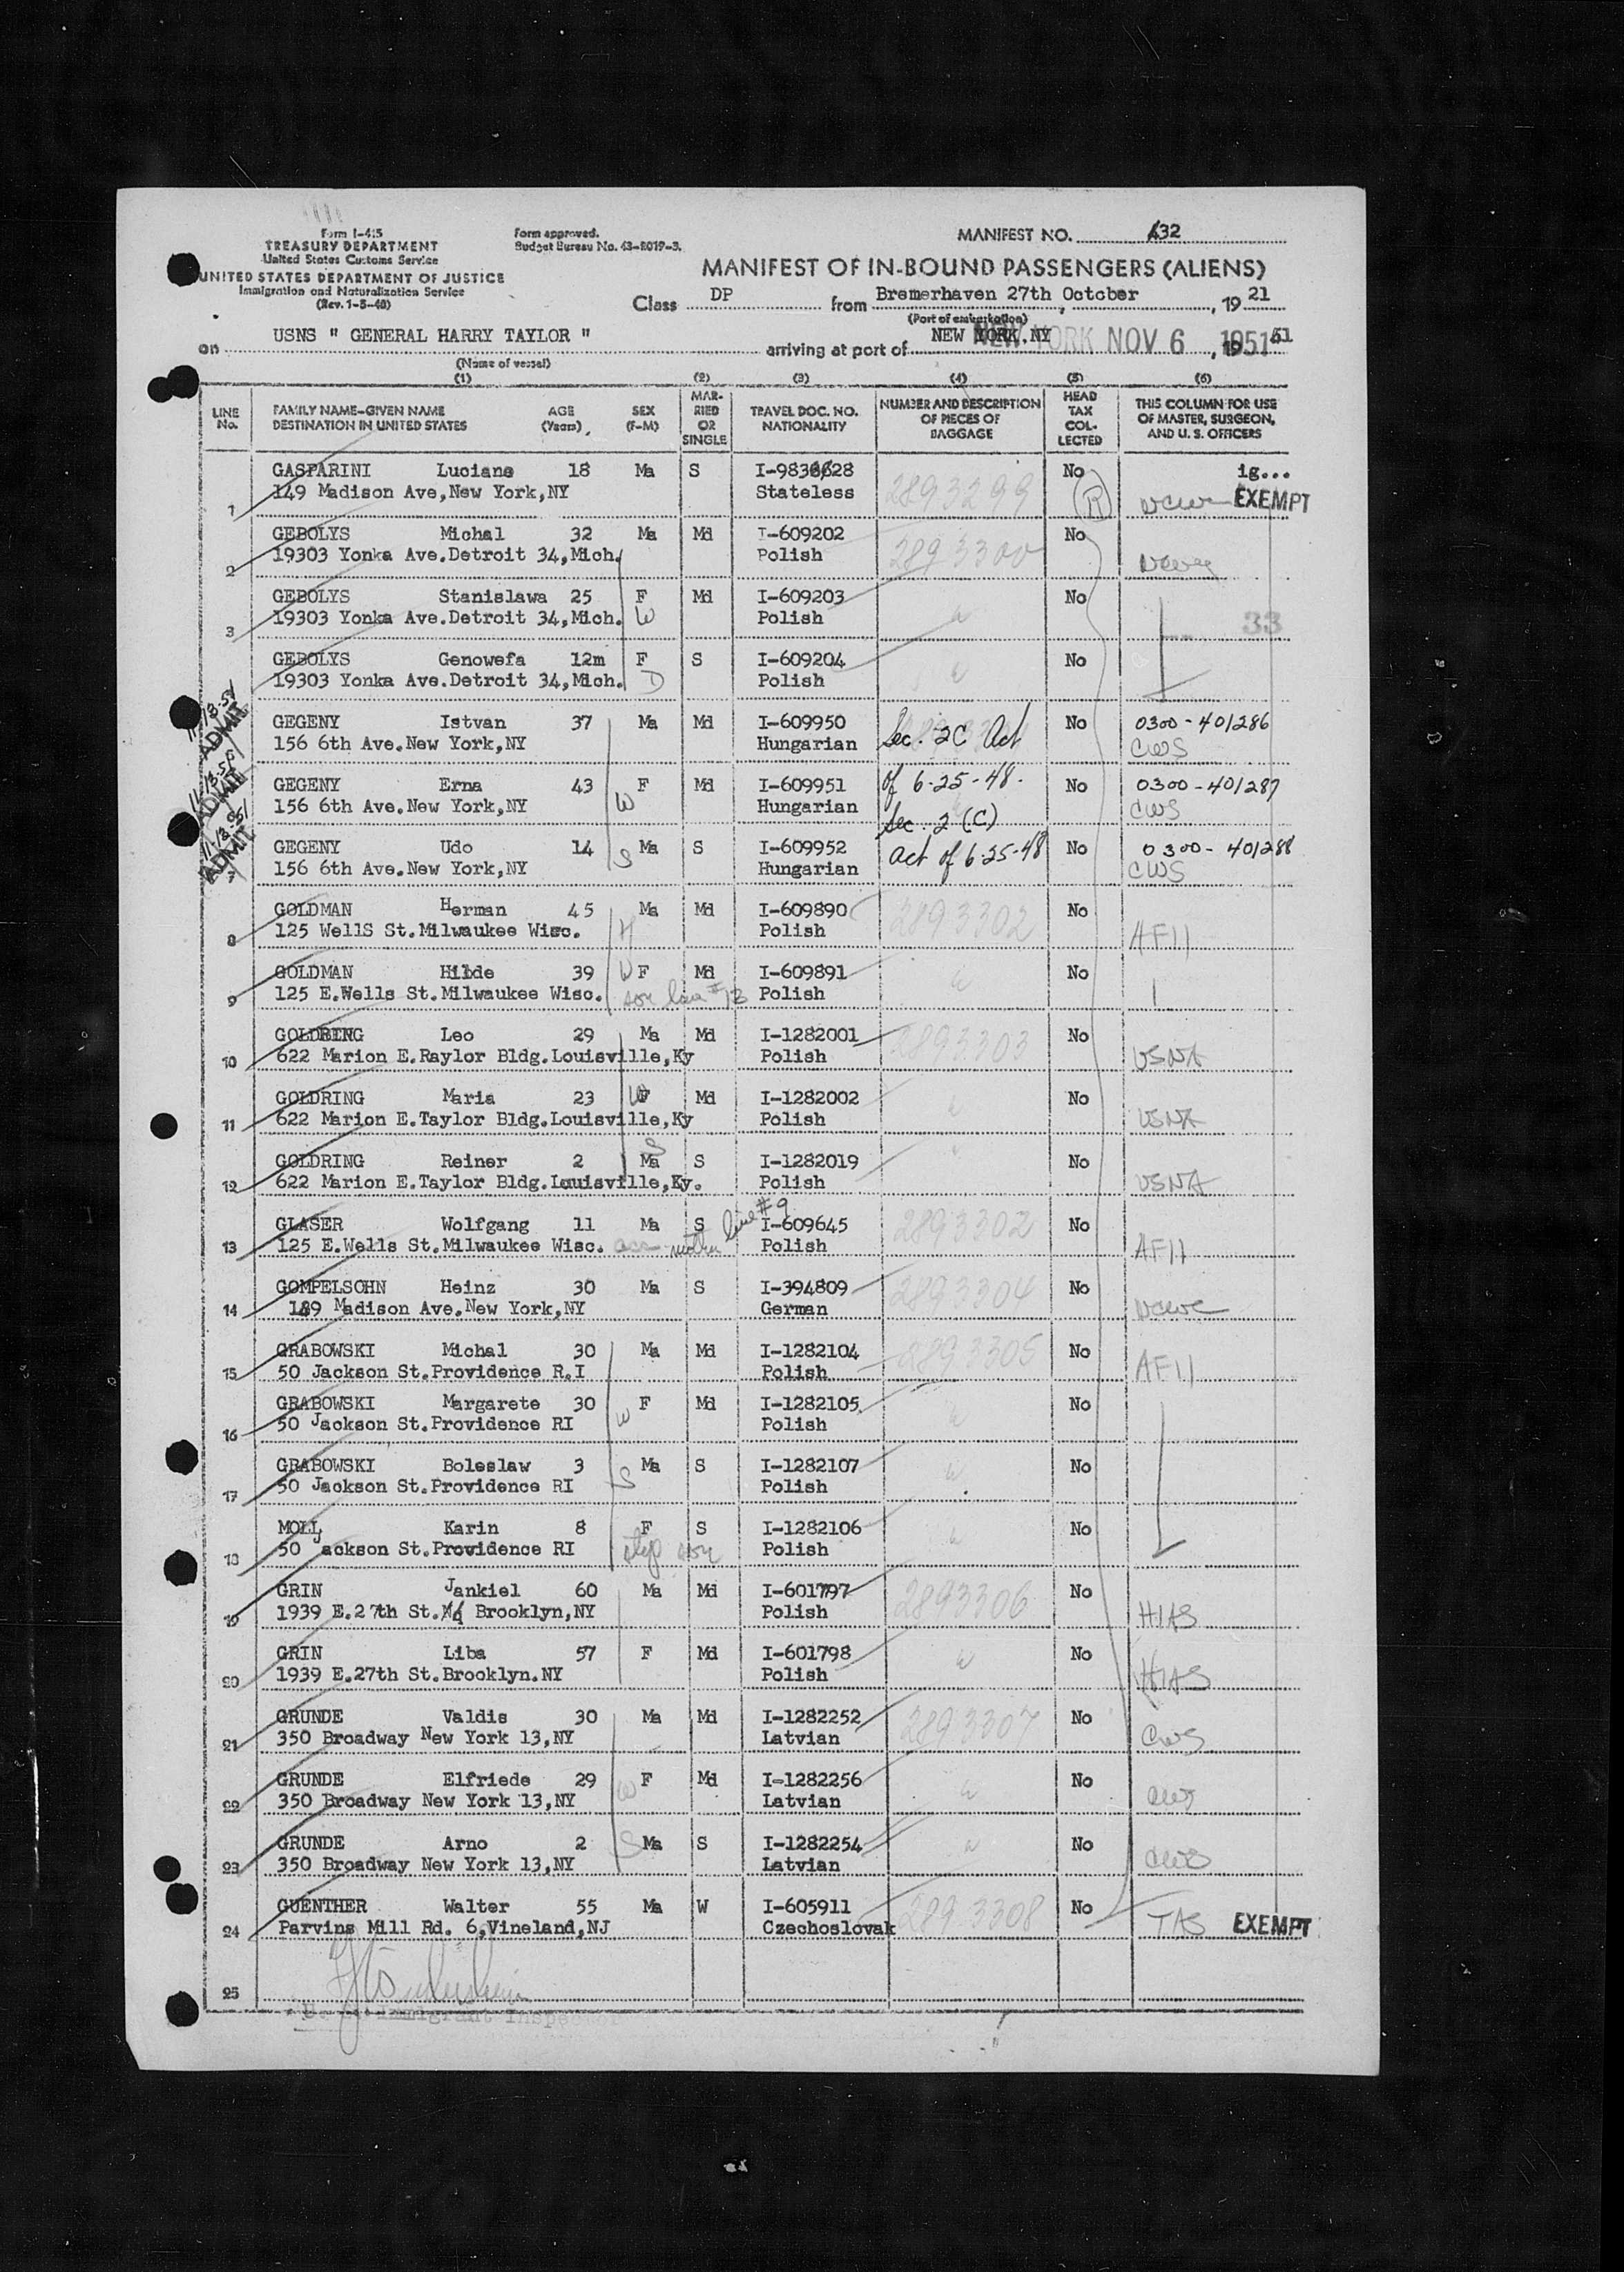 Form I-415
TREASURY DEPARTMENT
United States Customs Service
UNITED STATES DEPARTMENT OF JUSTICE
Immigration and Naturalization Service
(Rev. 1-5-48)
Form approved.
Budget Bureau No. 43-R019-3.
MANIFEST NO. 432
MANIFEST OF IN-BOUND PASSENGERS (ALIENS)
Class DP from Bremerhaven 27th October, 19 21
(Port of embarkation)
on USNS " GENERAL HARRY TAYLOR " arriving at port of NEW YORK, NY NEW YORK NOV 6 1951, 19 51
(Name of vessel)
(1) (2) (3) (4) (5) (6)
LINE No. FAMILY NAME-GIVEN NAME DESTINATION IN UNITED STATES AGE (Years) SEX (F-M) MARRIED OR SINGLE TRAVEL DOC. NO. NATIONALITY NUMBER AND DESCRIPTION OF PIECES OF BAGGAGE HEAD TAX COLLECTED THIS COLUMN FOR USE OF MASTER, SURGEON, AND U. S. OFFICERS
GASPARINI Luciano 18 Ma S I-9836628 No ig...
1 149 Madison Ave,New York,NY Stateless 2893299 R NCWC EXEMPT
GEBOLYS Michal 32 Ma Md I-609202 No
2 19303 Yonka Ave.Detroit 34,Mich. Polish 2893300 NCWC
GEBOLYS Stanislawa 25 F Md I-609203 No
3 19303 Yonka Ave.Detroit 34,Mich. W Polish 33
GEBOLYS Genowefa 12m F S I-609204 No
19303 Yonka Ave.Detroit 34,Mich. D Polish
11-13-51 ADMIT GEGENY Istvan 37 Ma Md I-609950 Sec. 2C Act No 0300-401286
156 6th Ave.New York,NY Hungarian CWS
11-13-51 ADMIT GEGENY Erna 43 F Md I-609951 of 6-25-48. No 0300-401287
156 6th Ave.New York,NY W Hungarian Sec. 2 (C) CWS
11-13-51 ADMIT GEGENY Udo 14 Ma S I-609952 Act of 6-25-48 No 0300-401288
7 156 6th Ave.New York,NY S Hungarian CWS
GOLDMAN Herman 45 Ma Md I-609890 2893302 No
8 125 WellS St.Milwaukee Wisc. H Polish AFII
GOLDMAN Hilde 39 W F Md I-609891 No
9 125 E.Wells St.Milwaukee Wisc. son line #13 Polish
GOLDRING Leo 29 Ma Md I-1282001 2893303 No
10 622 Marion E.Raylor Bldg.Louisville,Ky Polish USNA
GOLDRING Maria 23 W F Md I-1282002 No
11 622 Marion E.Taylor Bldg.Louisville,Ky Polish USNA
GOLDRING Reiner 2 S Ma S I-1282019 No
12 622 Marion E.Taylor Bldg.Louisville,Ky. Polish USNA
GLASER Wolfgang 11 Ma S I-609645 2893302 No
13 125 E.Wells St.Milwaukee Wisc. acc mother line #9 Polish AFII
GOMPELSOHN Heinz 30 Ma S I-394809 2893304 No
14 149 Madison Ave.New York,NY German NCWC
GRABOWSKI Michal 30 Ma Md I-1282104 2893305 No
15 50 Jackson St.Providence R.I Polish AFII
GRABOWSKI Margarete 30 F Md I-1282105 No
16 50 Jackson St.Providence RI W Polish
GRABOWSKI Boleslaw 3 Ma S I-1282107 No
17 50 Jackson St.Providence RI S Polish
MOLL Karin 8 F S I-1282106 No
18 50 Jackson St.Providence RI step Polish
GRIN Jankiel 60 Ma Md I-601797 2893306 No
19 1939 E.27th St. Brooklyn,NY Polish HIAS
GRIN Liba 57 F Md I-601798 No
20 1939 E.27th St.Brooklyn.NY Polish HIAS
GRUNDE Valdis 30 Ma Md I-1282252 2893307 No
21 350 Broadway New York 13,NY Latvian CWS
GRUNDE Elfriede 29 F Md I-1282256 No
22 350 Broadway New York 13,NY W Latvian CWS
GRUNDE Arno 2 S Ma S I-1282254 No
23 350 Broadway New York 13,NY Latvian CWS
GUENTHER Walter 55 Ma W I-605911 2893308 No
24 Parvins Mill Rd. 6,Vineland,NJ Czechoslovak TAS EXEMPT
25
Immigrant Inspector